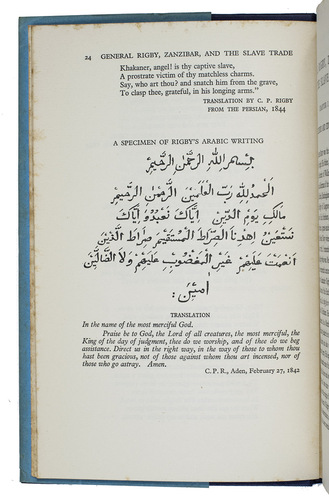 24 GENERAL RIGBY, ZANZIBAR, AND THE SLAVE TRADE
Khakaner, angel! is thy captive slave,
A prostrate victim of thy matchless charms.
Say, who art thou? and snatch him from the grave,
To clasp thee, grateful, in his longing arms."
TRANSLATION BY C. P. RIGBY
FROM THE PERSIAN, 1844
A SPECIMEN OF RIGBY'S ARABIC WRITING
بسم الله الرحمن الرحيم
الحمد لله رب العلمين الرحمن الرحيم
مالك يوم الدين اياك نعبد و اياك
نستعين اهدنا الصراط المستقيم صراط الذين
انعمت عليهم غير المغضوب عليهم ولا الضالين
امين :
TRANSLATION
In the name of the most merciful God.
Praise be to God, the Lord of all creatures, the most merciful, the
King of the day of judgment, thee do we worship, and of thee do we beg
assistance. Direct us in the right way, in the way of those to whom thou
hast been gracious, not of those against whom thou art incensed, nor of
those who go astray. Amen.
C. P. R., Aden, February 27, 1842